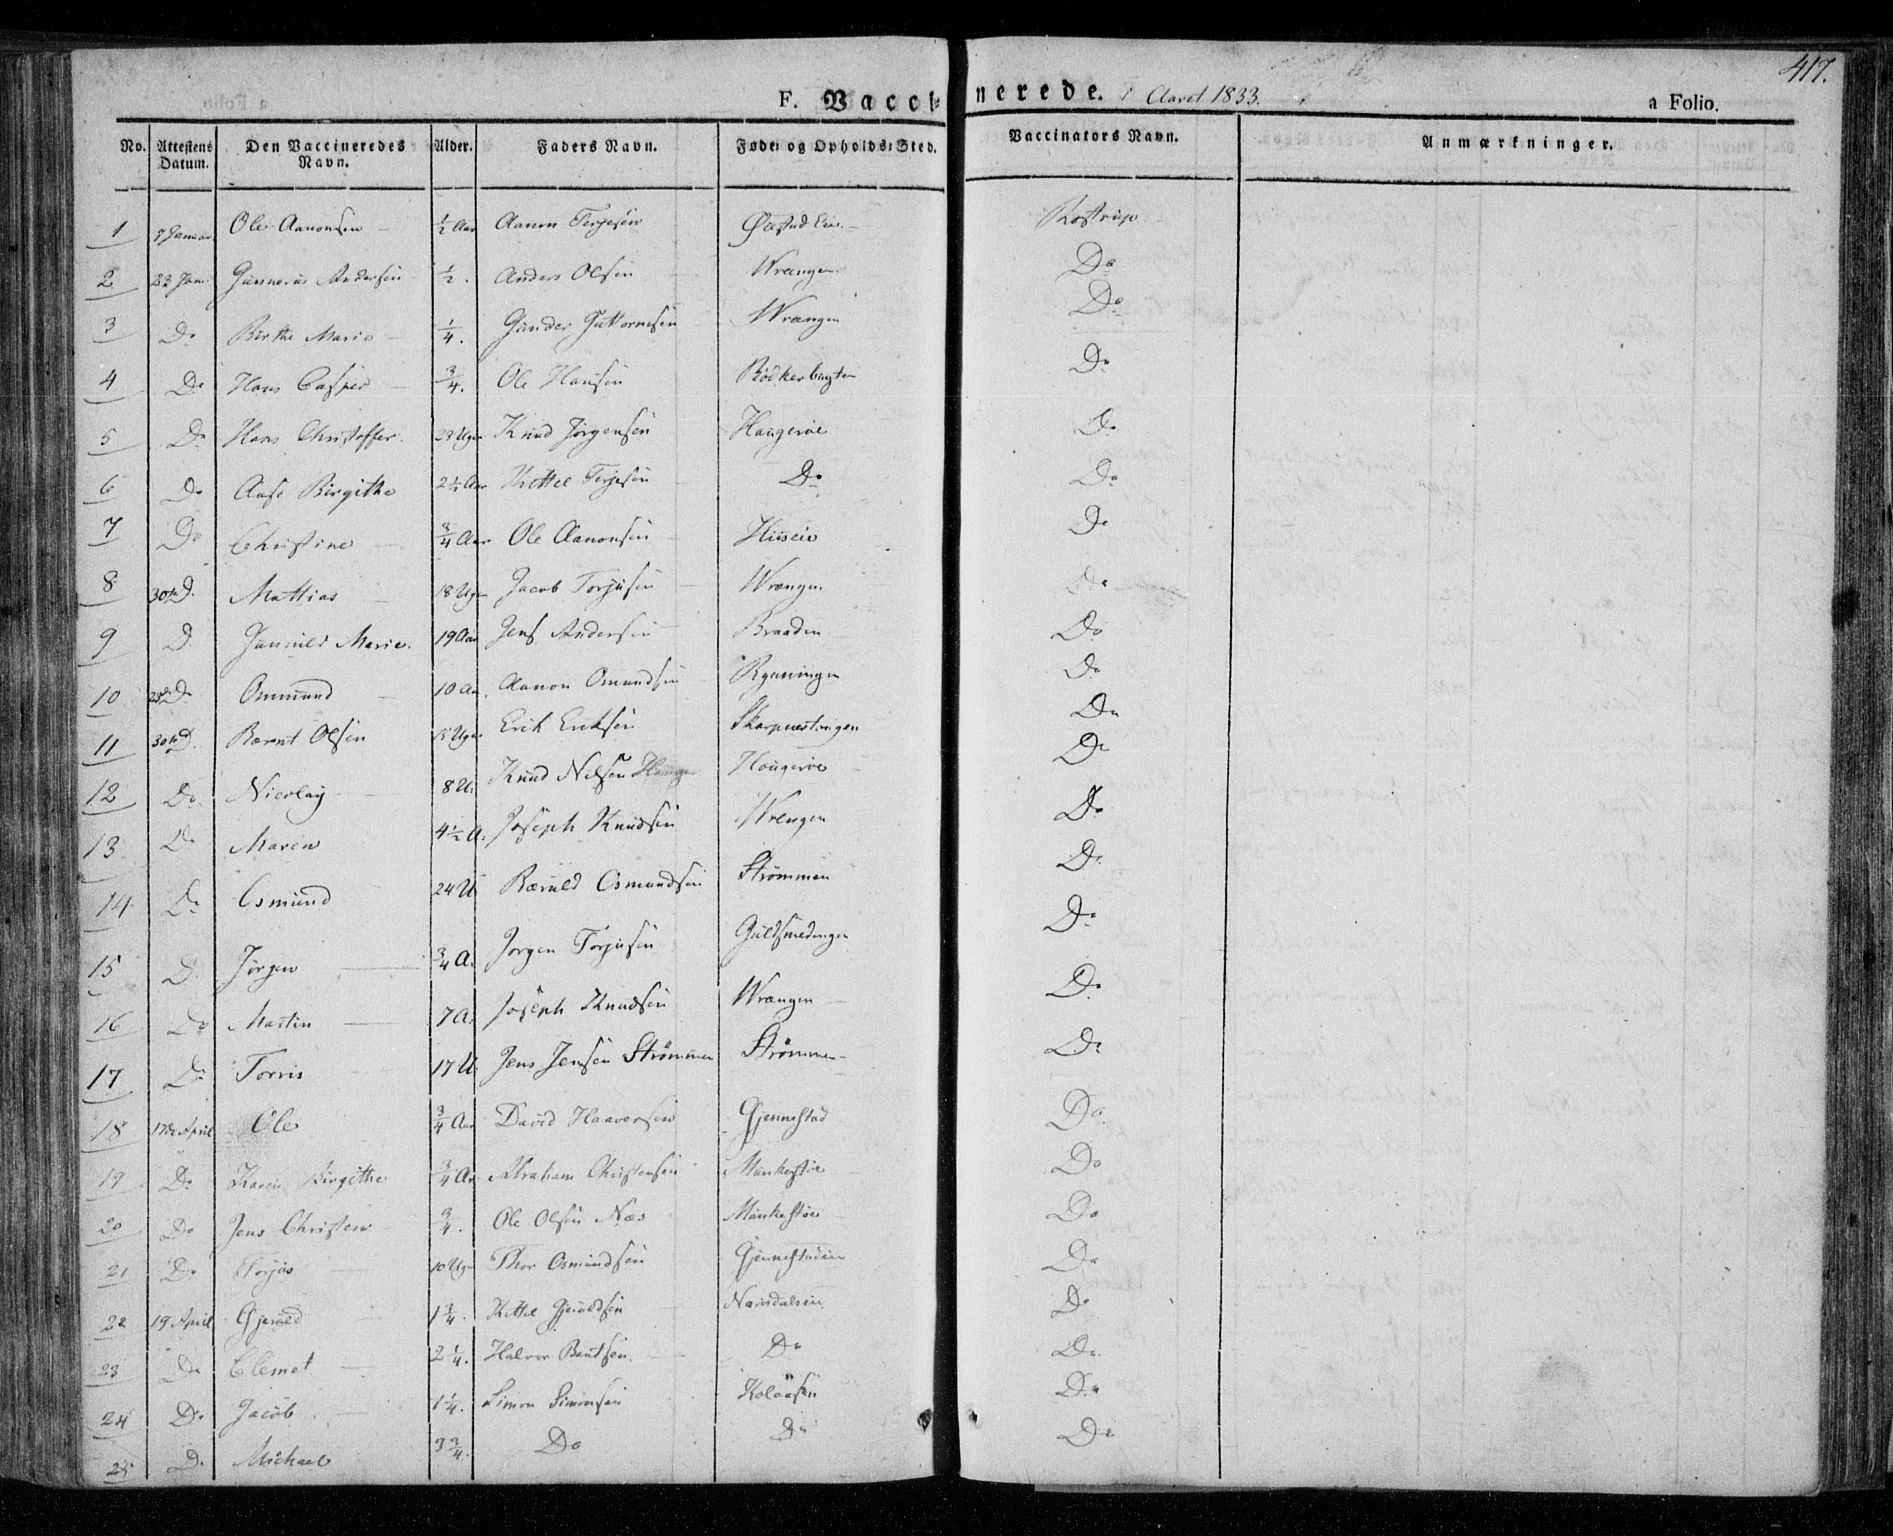 417.
F. Vaccinerede. i Aaret 1833. a Folio.
No. Attestens Datum. Den Vaccineredes Navn. Alder. Faders Navn. Føde- og Opholds-Sted. Vaccinators Navn. Anmærkninger.
1 7 Januar Ole Aanonsen ½ Aar Aanon Terjesen Rostrup
2 23 Jan: Gunnerus Andersen ½. Anders Olsen Wrængen Do
3 Do Birthe Marie ¼. Gunder Guttormsen Wrængen Do
4 Do Hans Casper ¾. Ole Hansen Bödkerbugten Do
5 Do Hans Christoffer. 23 Uger Knud Jörgensen Haugeröe Do
6 Do Aase Birgithe 2½ Aar Kettel Terjesen Do Do
7 Do Christine ¾ Aar Ole Aanonsen Huseie Do
8 30te D. Mattias 18 Uger Jacob Torjusen Wrængen Do
9 D. Gunnild Marie. 19 Aar Jens Andersen Braaden Do
10 Do Ommund 10 Aar. Aanon Omundsen Do
11 30te D. Bærnt Olsen 15 Uger Erik Eriksen Do
12 Do Nicolay 8 U. Knud Nilsen Haugeröe Do
13 Do Maren 4½ A. Joseph Knudsen Wrengen Do
14 Do Osmund 24 U Bæruld Osmundsen Strömmen Do
15 D. Jörgen ¾ A. Jörgen Torjusen Guldsmedengen Do
16 Do Martin 7 A. Joseph Knudsen Wrængen Do
17 Do Torris 17 U. Jens Jensen Strömmen Strömmen Do
18 17de April Ole ¾ Aar David Haaversen Gjennestad Do
19 Do Karen Birgithe ¾ Aar Abraham Christensen Do
20 Do Jens Christen ¾. Ole Olsen Næs Do
21 Do Torjus 10 Uger Thor Osmundsen Do
22 19 April Gjeruld 1¾. Kittel Gjeruldsen Do
23 Do Clemet 2¼. Halvor Bentsen. Do Do
24 Do Jacob 1¼. Simon Simonsen Kolaasen Do
25 D. Michael 3¾. Do Do Do